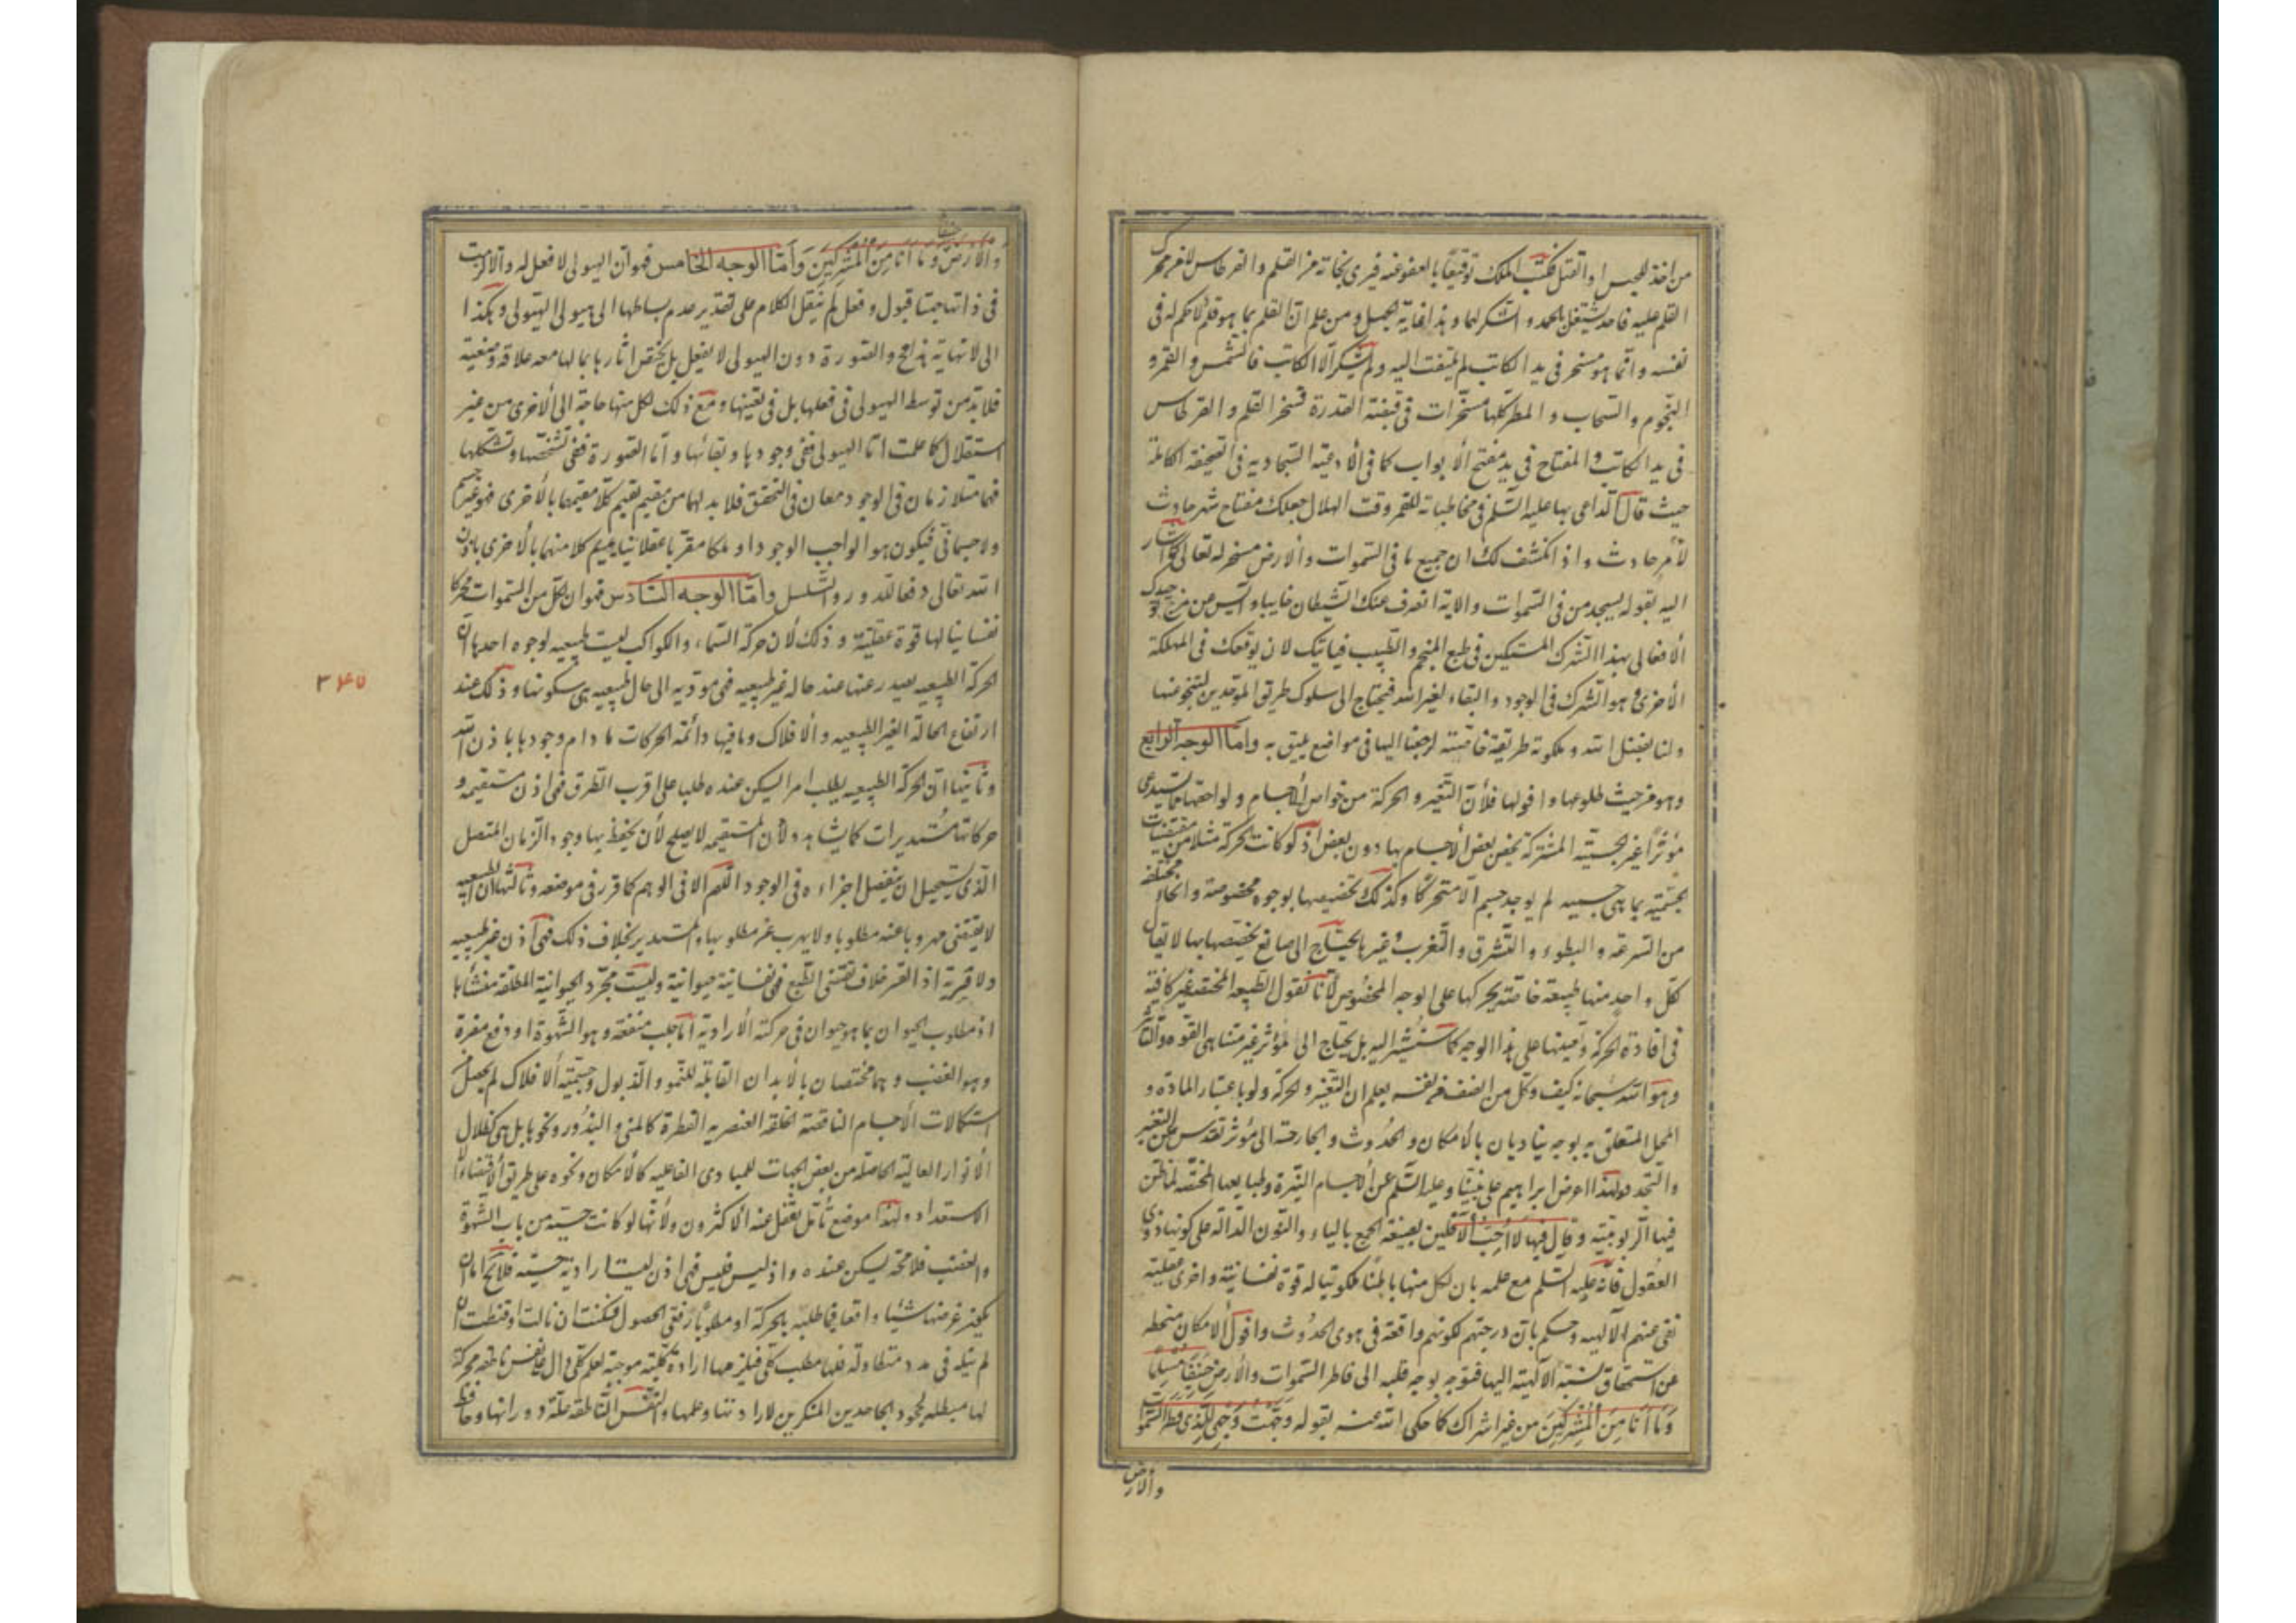 من اخذ للحبس او القتل فكتب الملك توقيعا بالعفو عنه فيرى نجاته من القلم والقرطاس لا من محرك
القلم عليه فاخذ يشتغل بالحمد والشكر لهما وهذا غاية الجهل ومن علم ان القلم بما هو قلم لا حكم له فى
نفسه وانما هو مسخر فى يد الكاتب لم يلتفت اليه ولم يشكر الا الكاتب فالشمس والقمر و
النجوم والسحاب والمطر كلها مسخرات فى قبضة القدرة تسخر القلم والقرطاس
فى يد الكاتب والمفتاح فى يد مفتح الابواب كما فى الادعية السجادية فى الصحيفة الكاملة
حيث قال الداعى بها عليه السلم فى مخاطباته للقمر وقت الهلال جعلك مفتاح شهر حادث
لامر حادث واذ انكشف لك ان جميع ما فى السموات والارض مسخر له تعالى كما اشار
اليه بقوله يسجد من فى السموات والاية انصرف عنك الشيطان خايبا وآيس من مزج توحيدك
الافعالى بهذا الشرك المستكين فى طبع المنجم والطبيب فياتيك لان يوقعك فى المهلكة
الاخرى وهو الشرك فى الوجود والبقاء لغير الله فيحتاج الى سلوك طريق الموحدين لتنجو منها
ولنا بفضل الله وملكوته طريقة خاصة لرجعنا اليها فى مواضع يليق به واما الوجه الرابع
وهو من حيث طلوعها وافولها فلان التغير والحركة من خواص الاجسام ولواحقها مما يستدعى
مؤثرا غير الجسمية المشتركة يخص بعض الاجسام بها دون بعض اذ لو كانت الحركة مثلا من مقتضيات
الجسمية بما هى جسمية لم يوجد جسم الا متحركا وكذلك تخصيصها بوجوه مخصوصة وانحاء مختلفة
من السرعة والبطوء والتشرق والتغرب وغيرها يحتاج الى صانع يخصصها بها لا يقال
لكل واحد منها طبيعة خاصة يحركها على الوجه المخصوص لانا نقول الطبيعة المختصة غير كافية
فى افادة الحركة وتعينها على هذا الوجه كما سنشير اليه بل يحتاج الى مؤثر غير متناهى القوة والتاثير
وهو الله سبحانه كيف وكل من انصف من نفسه يعلم ان التغير والحركة ولو باعتبار المادة و
المحل المتعلق به بوجه يناديان بالامكان والحدوث والحاجة الى مؤثر تقدس عن التغير
والتجدد ولهذا اعرض ابراهيم على نبينا وعليه السلم عن الاجسام النيرة وطبايعها المختصة لما ظن
فيها الربوبية وقال فيها لا احب الآفلين بصيغة الجمع بالياء والنون الدالة على كونها ذوى
العقول فانه عليه السلم مع علمه بان لكل منها باطنا ملكوتيا له قوة نفسانية واخرى عقلية
نفى عنهم الالهية وحكم بان درجتهم لكونهم واقعة فى هوى الحدوث وافول الامكان منحطة
عن استحقاق نسبة الالهية اليها فتوجه بوجه قلبه الى فاطر السموات والارض حنيفا مسلما
وما انا من المشركين من غير اشراك كما حكى الله عنه بقوله وجهت وجهى للذى فطر السموات
والارض
والارض حنيفا وما انا من المشركين واما الوجه الخامس فهو ان الهيولى لا فعل له والا لزمت
فى ذاتها جهتا قبول وفعل ثم ننقل الكلام على تقدير عدم بساطها الى هيولى الهيولى وهكذا
الى لا نهاية هذا مح والصورة دون الهيولى لا يفعل بل يختص اثارها بما لها معه علاقة وضعية
فلا بد من توسط الهيولى فى فعلها بل فى تعينها ومع ذلك لكل منها حاجة الى الاخرى من غير
استقلال كما علمت اما الهيولى ففى وجودها وبقائها واما الصورة ففى تشخصها وتشكلها
فهما متلازمان فى الوجود معان فى التحقق فلا بد لهما من مقيم يقيم كلا مقيما بالاخرى فهو غير جسم
ولا جسمانى فيكون هو الواجب الوجود او ملكا مقربا عقلانيا يقيم كلا منهما بالاخرى باذن
الله تعالى دفعا للدور والتسلسل واما الوجه السادس فهو ان لكل من السموات محركا
نفسانيا لها قوة عقلية وذلك لان حركة السماء والكواكب ليست طبيعيه لوجوه احدها ان
الحركة الطبيعيه يصدر عنها عند حالة غير طبيعيه فهى مؤديه الى حال طبيعيه هى سكونها وذلك عند
ارتفاع الحالة الغير الطبيعيه والافلاك وما فيها دائمة الحركات ما دام وجودها باذن الله
وثانيها ان الحركة الطبيعيه يطلب امرا ليسكن عنده طلبا على اقرب الطرق فهى اذن مستقيمه و
حركاتها مستديرات كما يشاهد ولان المستقيمه لا يصلح لان يحفظ بها وجود الزمان المتصل
الذى يستحيل ان ينفصل اجزاءه فى الوجود اللهم الا فى الوهم كما قرر فى موضعه وثالثها ان الطبيعيه
لا يقتضى مهروبا عنه مطلوبا ولا يهرب عن مطلوبها والمستدير بخلاف ذلك فهى اذن غير طبيعيه
ولا قسرية اذ القسر خلاف مقتضى الطبع فهى نفسانية حيوانية وليست مجرد الحيوانية المطلقة منشأها
اذ مطلوب الحيوان بما هو حيوان فى حركته الارادية اما جلب منفعة وهو الشهوة او دفع مضرة
وهو الغضب وهما مختصان بالابدان القابلة للنمو والذبول وجسمية الافلاك لم يحصل
استكمالات الاجسام الناقصة الخلقة العنصريه الفطرة كالمنى والبذور ونحوها بل هى كظلال
الانوار العالية الحاصلة من بعض الجهات للمبادى الفاعليه كالامكان ونحوه على طريق الاقتضاء لا
الاستعداد ولهذا موضع تأمل يغفل عنه الاكثرون ولانها لو كانت حسية من باب الشهوة
والغضب فلا محة ليسكن عنده واذ ليس فليس فهى اذن ليست ارادية حسية فلا يخ اما ان
يكون غرضها شيئا واقعا فما طلبه بالحركة او مطلوبا زفقى الحصول فسكنت ان نالت او قنطت ان
لم تنله فى مدد متطاولة فلها مطلب كلى فيلزمها ارادة كلية موجبة لعلم كلى دال على نفس ناطقه محركة
لها مبطله لجحود الجاحدين المنكرين لارادتها وعلمها والنفس الناطقه علة دورانها وحافظ
٣٤٥